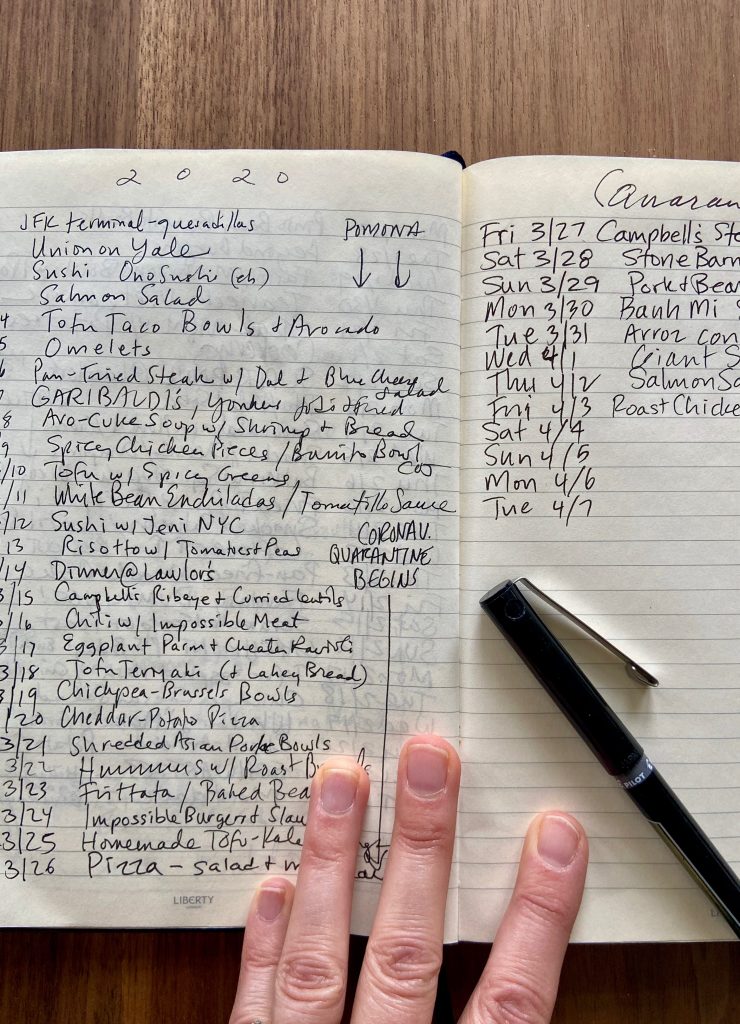 2 0 2 0
JFK terminal-quesadillas
POMONA
Union on Yale
Sushi OnoSushi (eh)
Salmon Salad
4 Tofu Taco Bowls + Avocado
5 Omelets
6 Pan-Fried Steak w/ Dal + Blue Cheese Salad
7 GARIBALDI's, Yonkers
8 Avo-Cuke Soup w/ Shrimp + Bread
9 Spicy Chicken Pieces / Burrito Bowl
/10 Tofu w/ Spicy Greens
/11 White Bean Enchiladas / Tomatillo Sauce
/12 Sushi w/ Jeni NYC
13 Risotto w/ Tomatoes + Peas
CORONAV.
QUARANTINE
BEGINS
/14 Dinner @ Lawlor's
3/15 Campbell's Ribeye + Curried Lentils
/16 Chili w/ Impossible Meat
3/17 Eggplant Parm + Cheater Ravioli
3/18 Tofu Teriyaki (+ Lahey Bread)
3/19 Chickpea-Brussels Bowls
/20 Cheddar-Potato Pizza
3/21 Shredded Asian Pork Bowls
3/22 Hummus w/ Roast
3/23 Frittata / Baked Bea
3/24 Impossible Burgers + Slaw
3/25 Homemade Tofu-Kale
3/26 Pizza - salad +
LIBERTY
Fri 3/27 Campbell's Ste
Sat 3/28 Stone Barn
Sun 3/29 Pork + Bea
Mon 3/30 Banh Mi
Tue 3/31 Arroz con
Wed 4/1 Giant S
Thu 4/2 Salmon Sa
Fri 4/3 Roast Chicke
Sat 4/4
Sun 4/5
Mon 4/6
Tue 4/7
PILOT